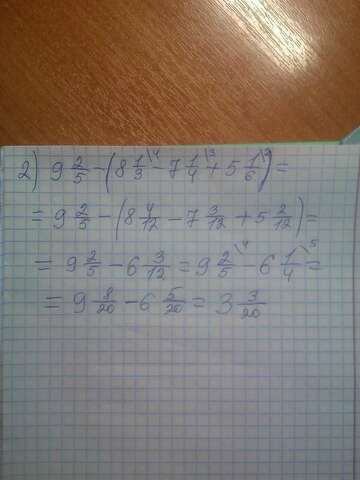 2) 9 2/5 - (8 1/3 \4 - 7 1/4 \3 + 5 1/6 \2) =
= 9 2/5 - (8 4/12 - 7 3/12 + 5 2/12) =
= 9 2/5 - 6 3/12 = 9 2/5 \4 - 6 1/4 \5 =
= 9 8/20 - 6 5/20 = 3 3/20